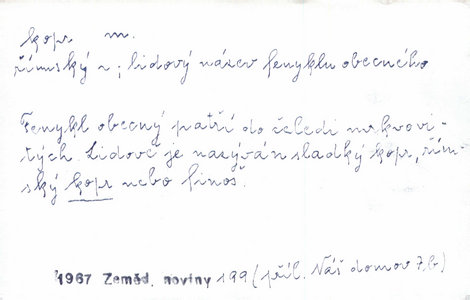 kopr m.
římský ~; lidový název fenyklu obecného
Fenykl obecný patří do čeledi mrkvovi-
tých. Lidově je nazýván sladký kopr, řím-
ský kopr nebo finoš.
1967 Zeměd. noviny 199 (příl. Náš domov